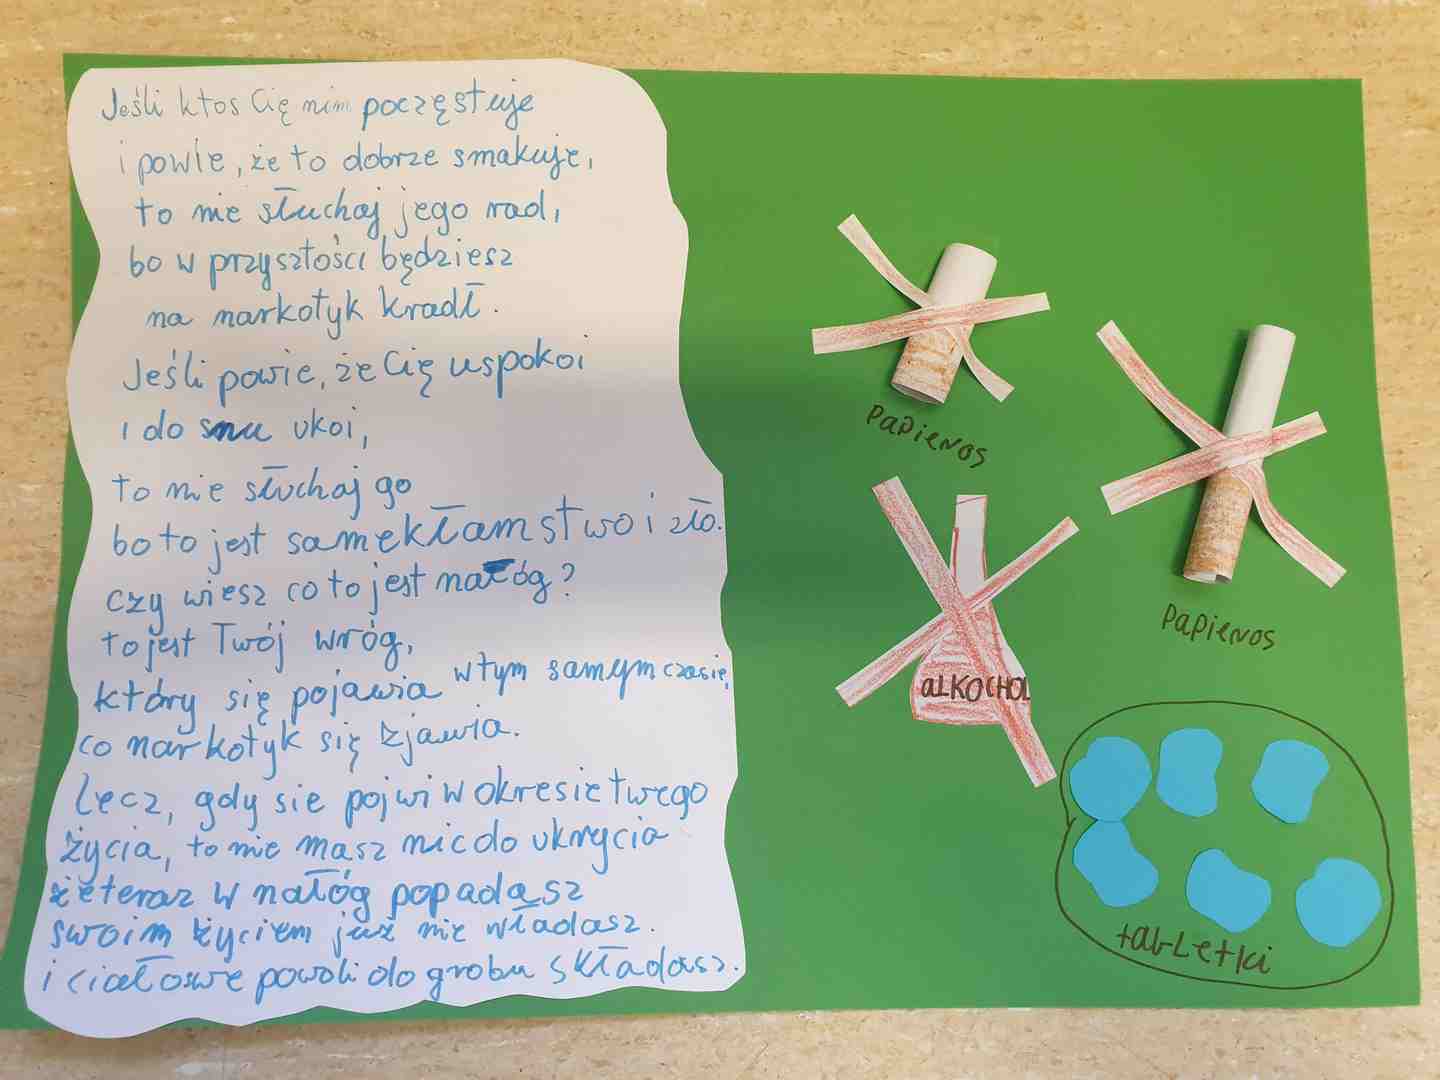 Jeśli ktos Cię nim poczęstuje
i powie, że to dobrze smakuje,
to nie słuchaj jego rad,
bo w przyszłości będziesz
na narkotyk kradł.
Jeśli powie, że Cię uspokoi
i do snu ukoi,
to nie słuchaj go
bo to jest same kłamstwo i zło.
czy wiesz co to jest nałóg?
to jest Twój wróg,
który się pojawia w tym samym czasie,
co narkotyk się zjawia.
Lecz, gdy sie pojwi w okresie twego
życia, to nie masz nic do ukrycia
że teraz w nałóg popadasz
swoim życiem już nie władasz.
i ciałowe powoli do grobu składasz.
PAPIEROS
PAPIEROS
aLKOCHOL
tabLetki